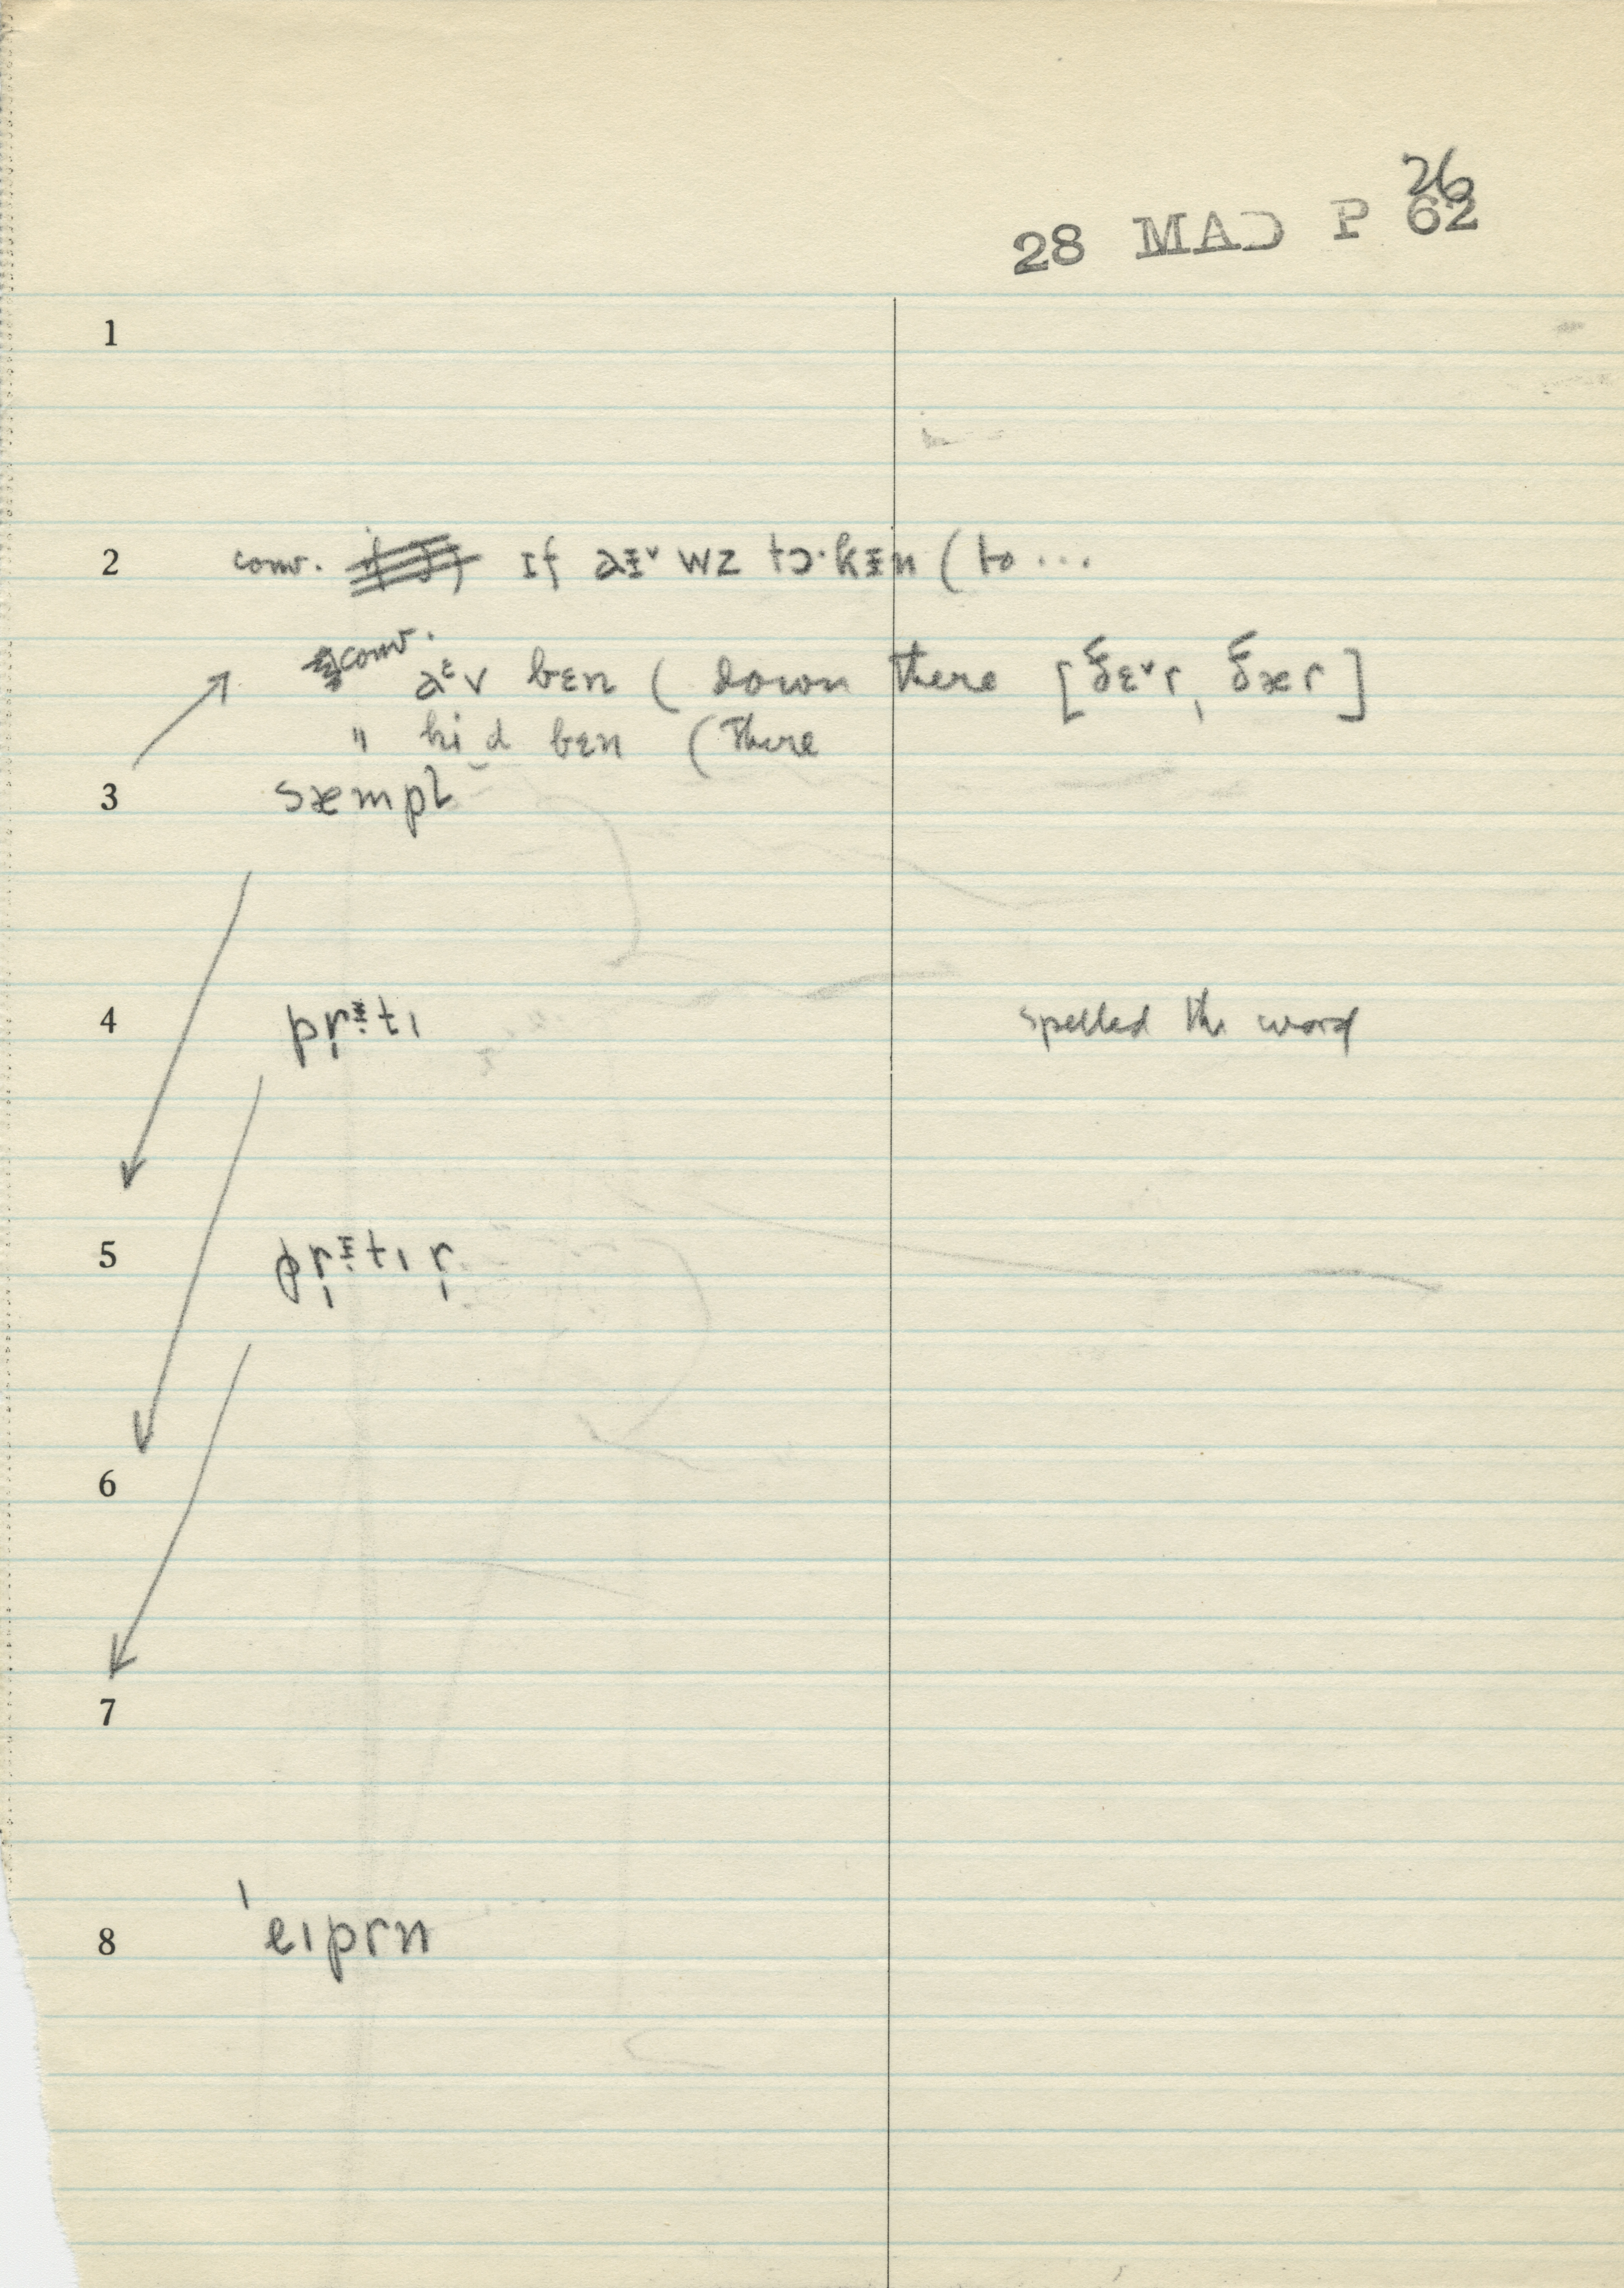 26
28 MAD P 62
1
2 conv. ɪf aᵻ˅ wz tɔ·kᵻn ( to ...
conv. aᶤv bɛn ( down there [ðɛ˅r, ðær]
" hi_d bɛn ( there
3 sæmpl
4 prᵻtɪ spelled the word
5 prᵻtɪ r
6
7
8 'eɪprn